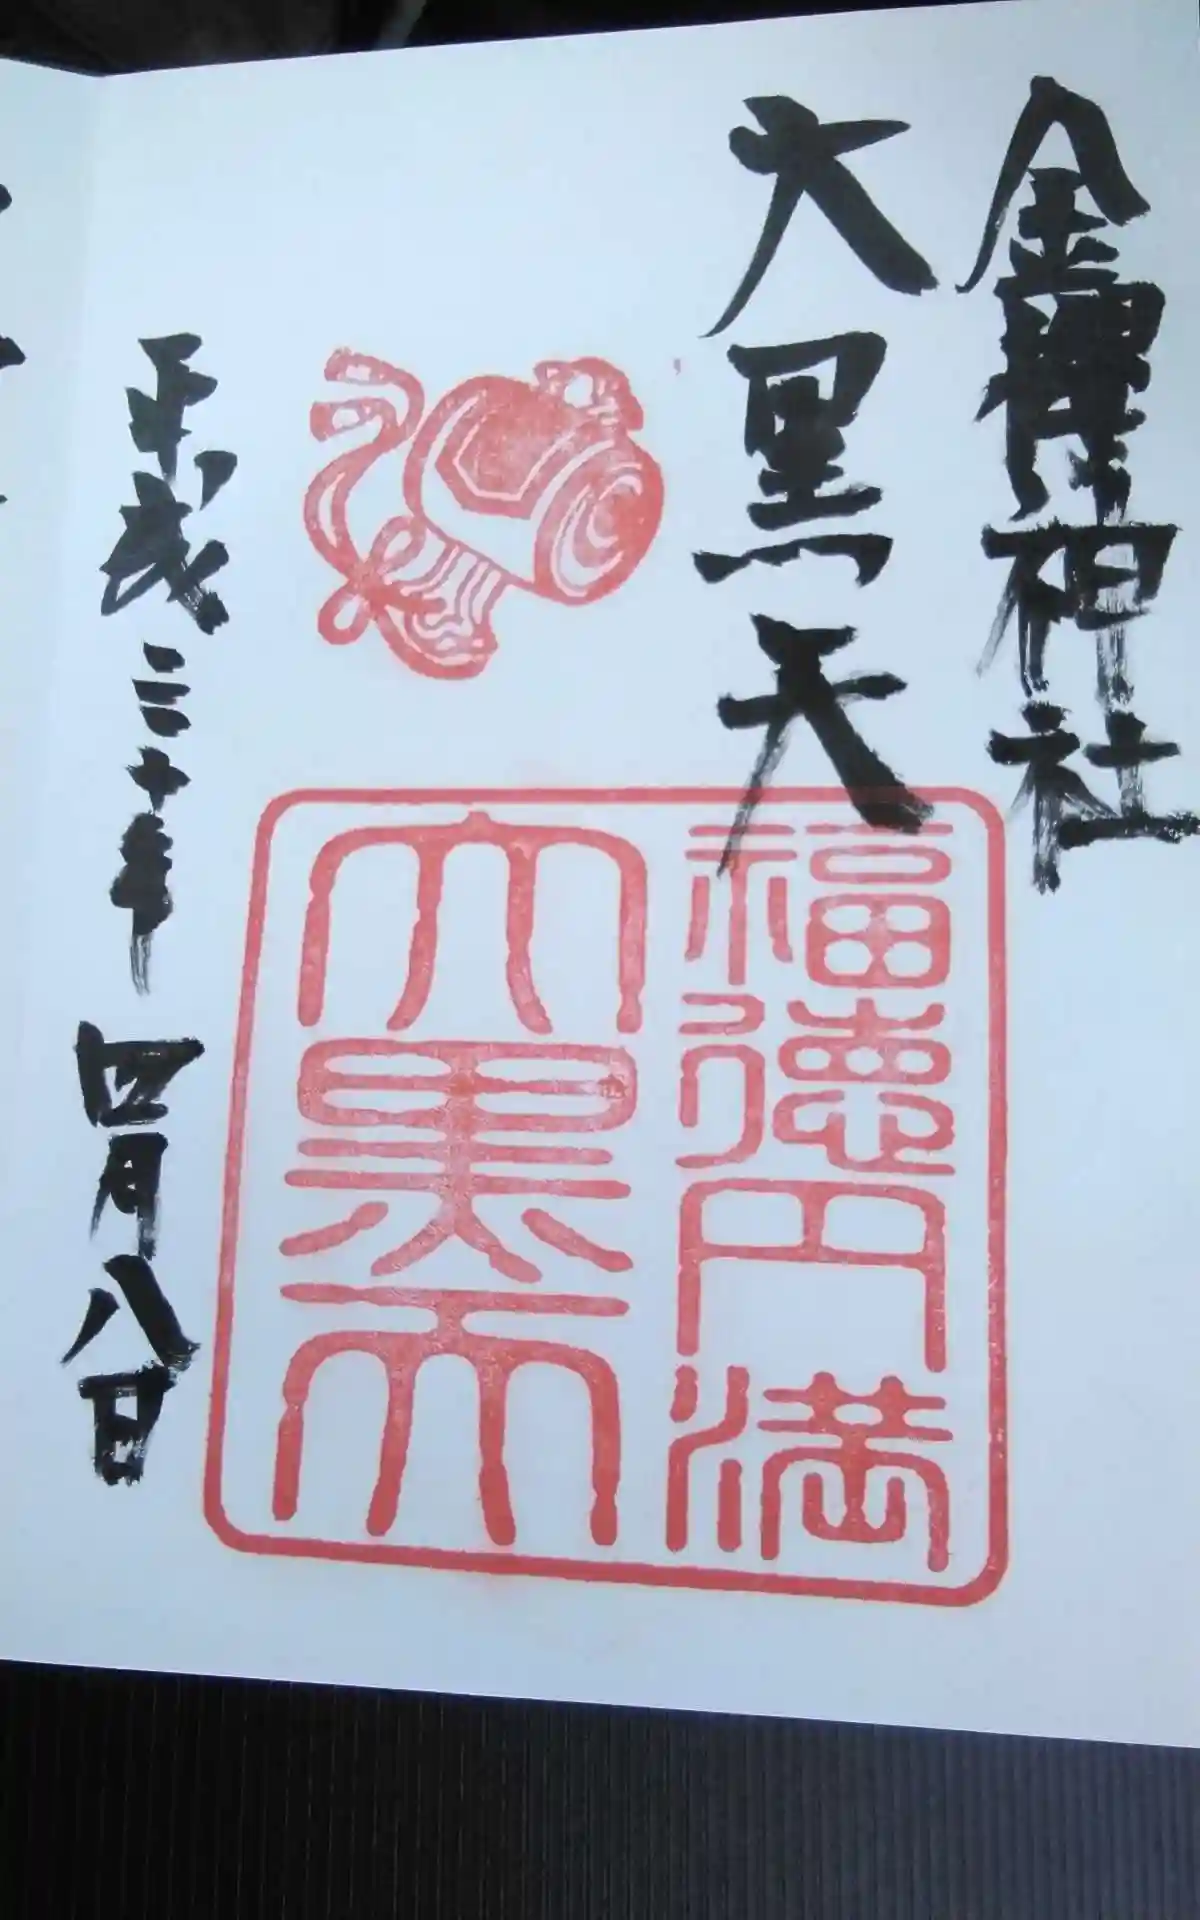 神社
大黒天
福徳円満
大黒天
平成三十年四月八日